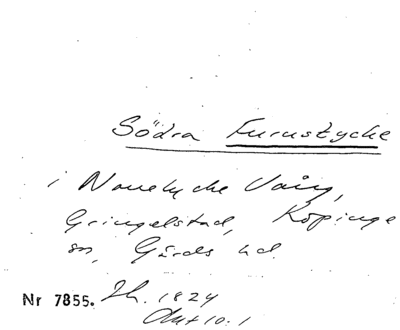 Södra Furustycke
i Nouelycke Vång,
Gringelstad, Köpinge
sn, Gärds hd.
Nr 7855. Lh. 1824
Akt 10.1